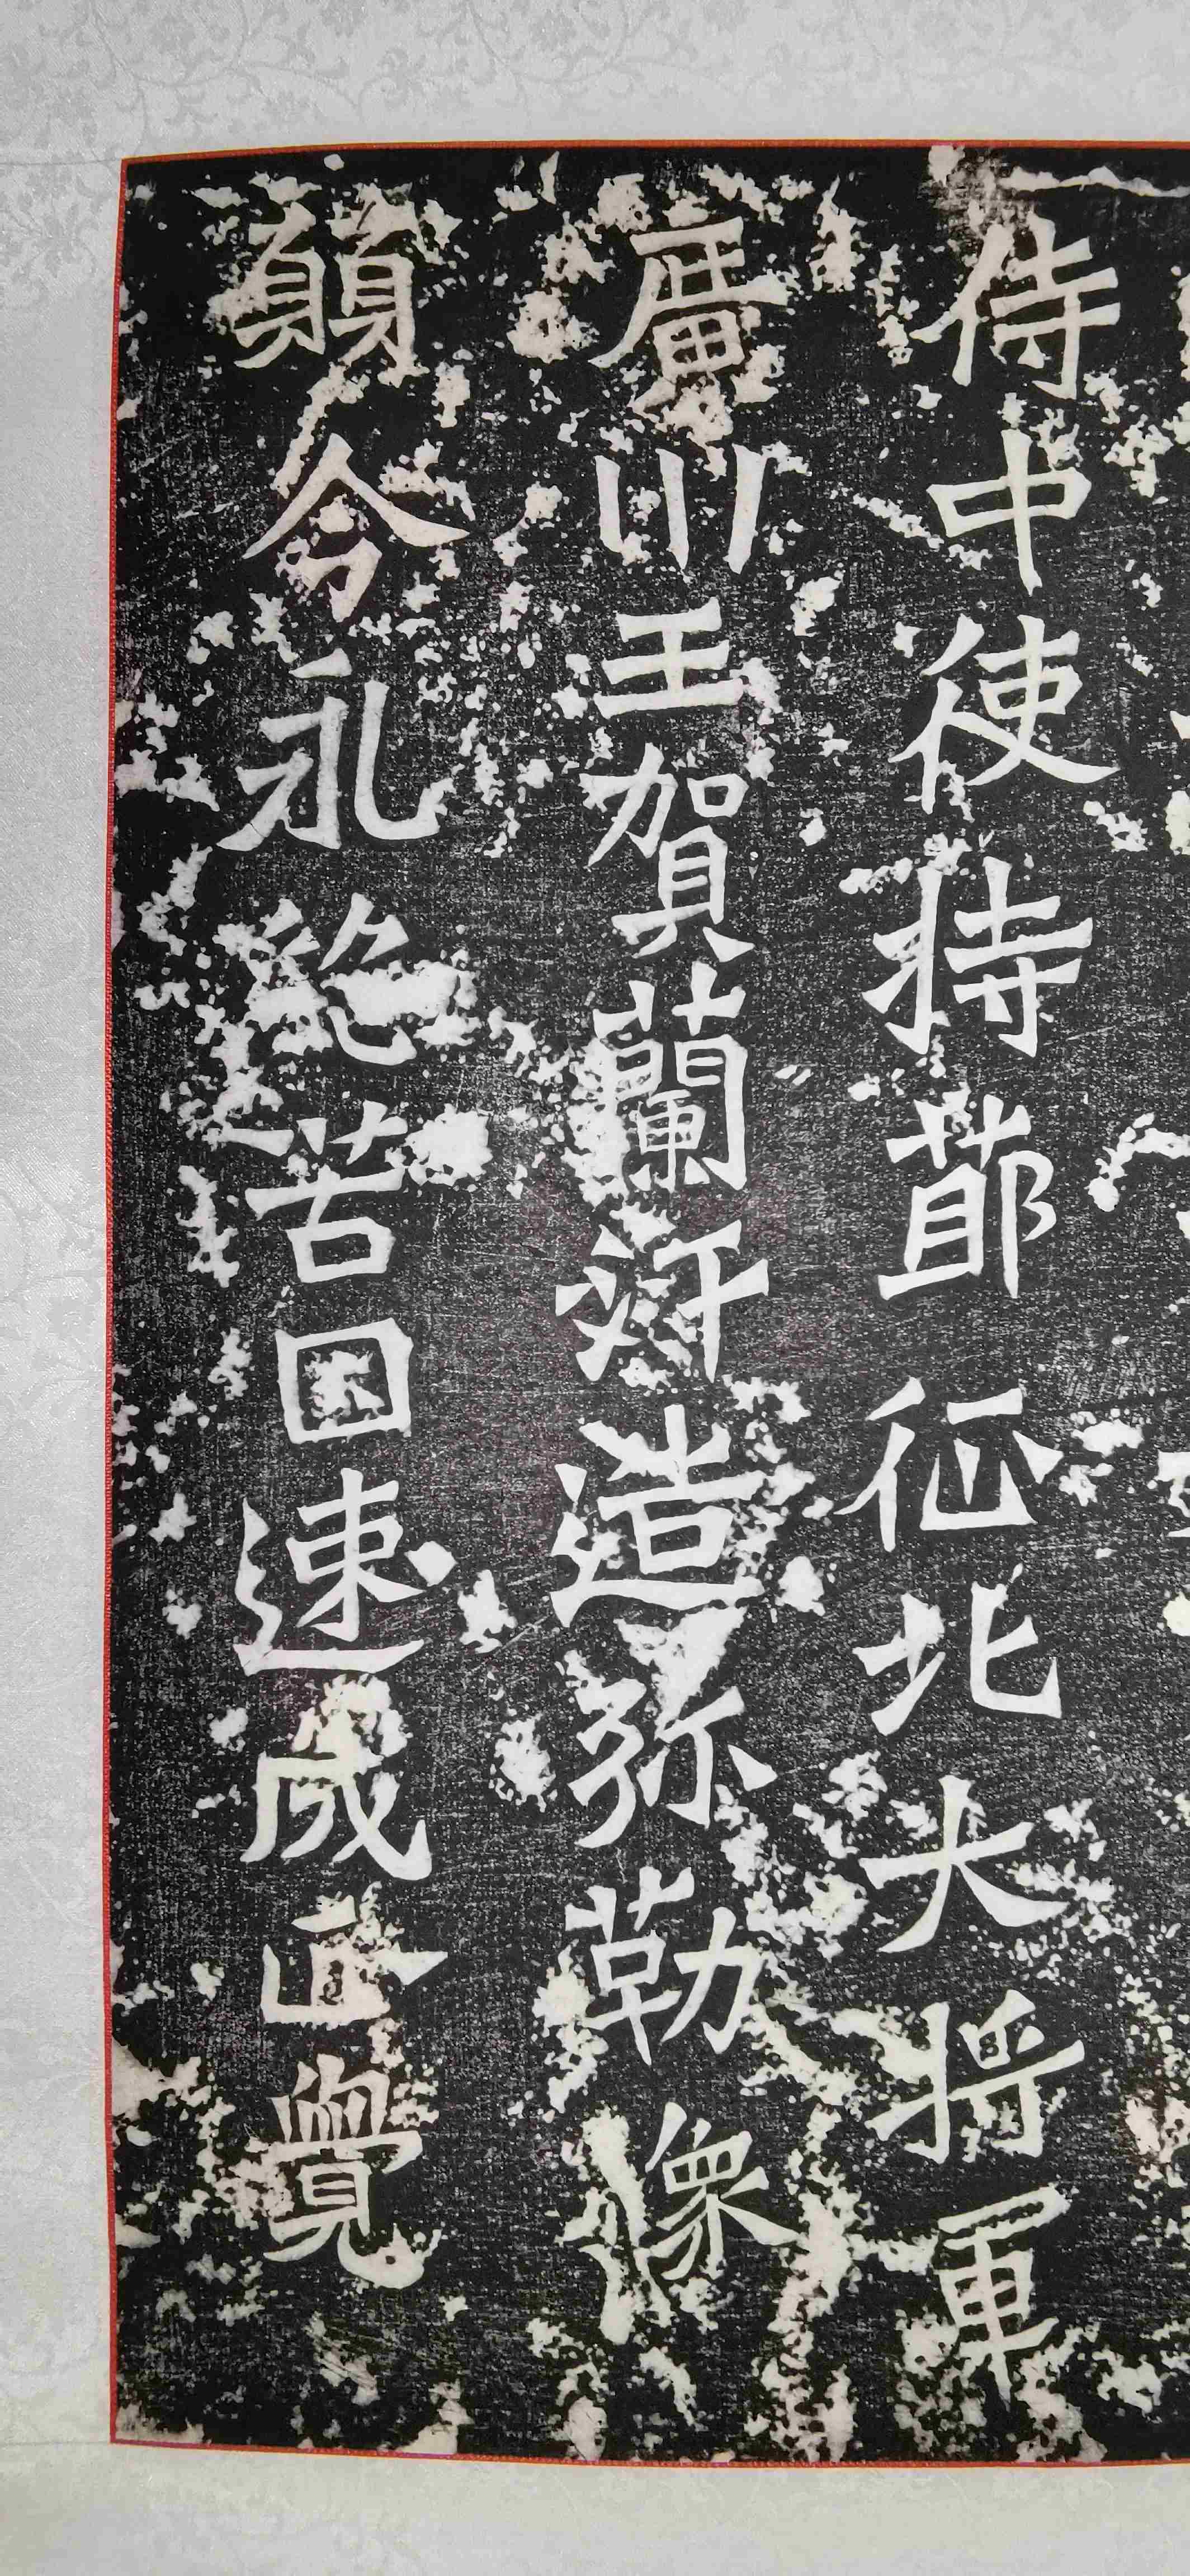 侍中使持節征北大將軍
廣川王賀蘭汗造弥勒像
願令永絕苦因速成正覺